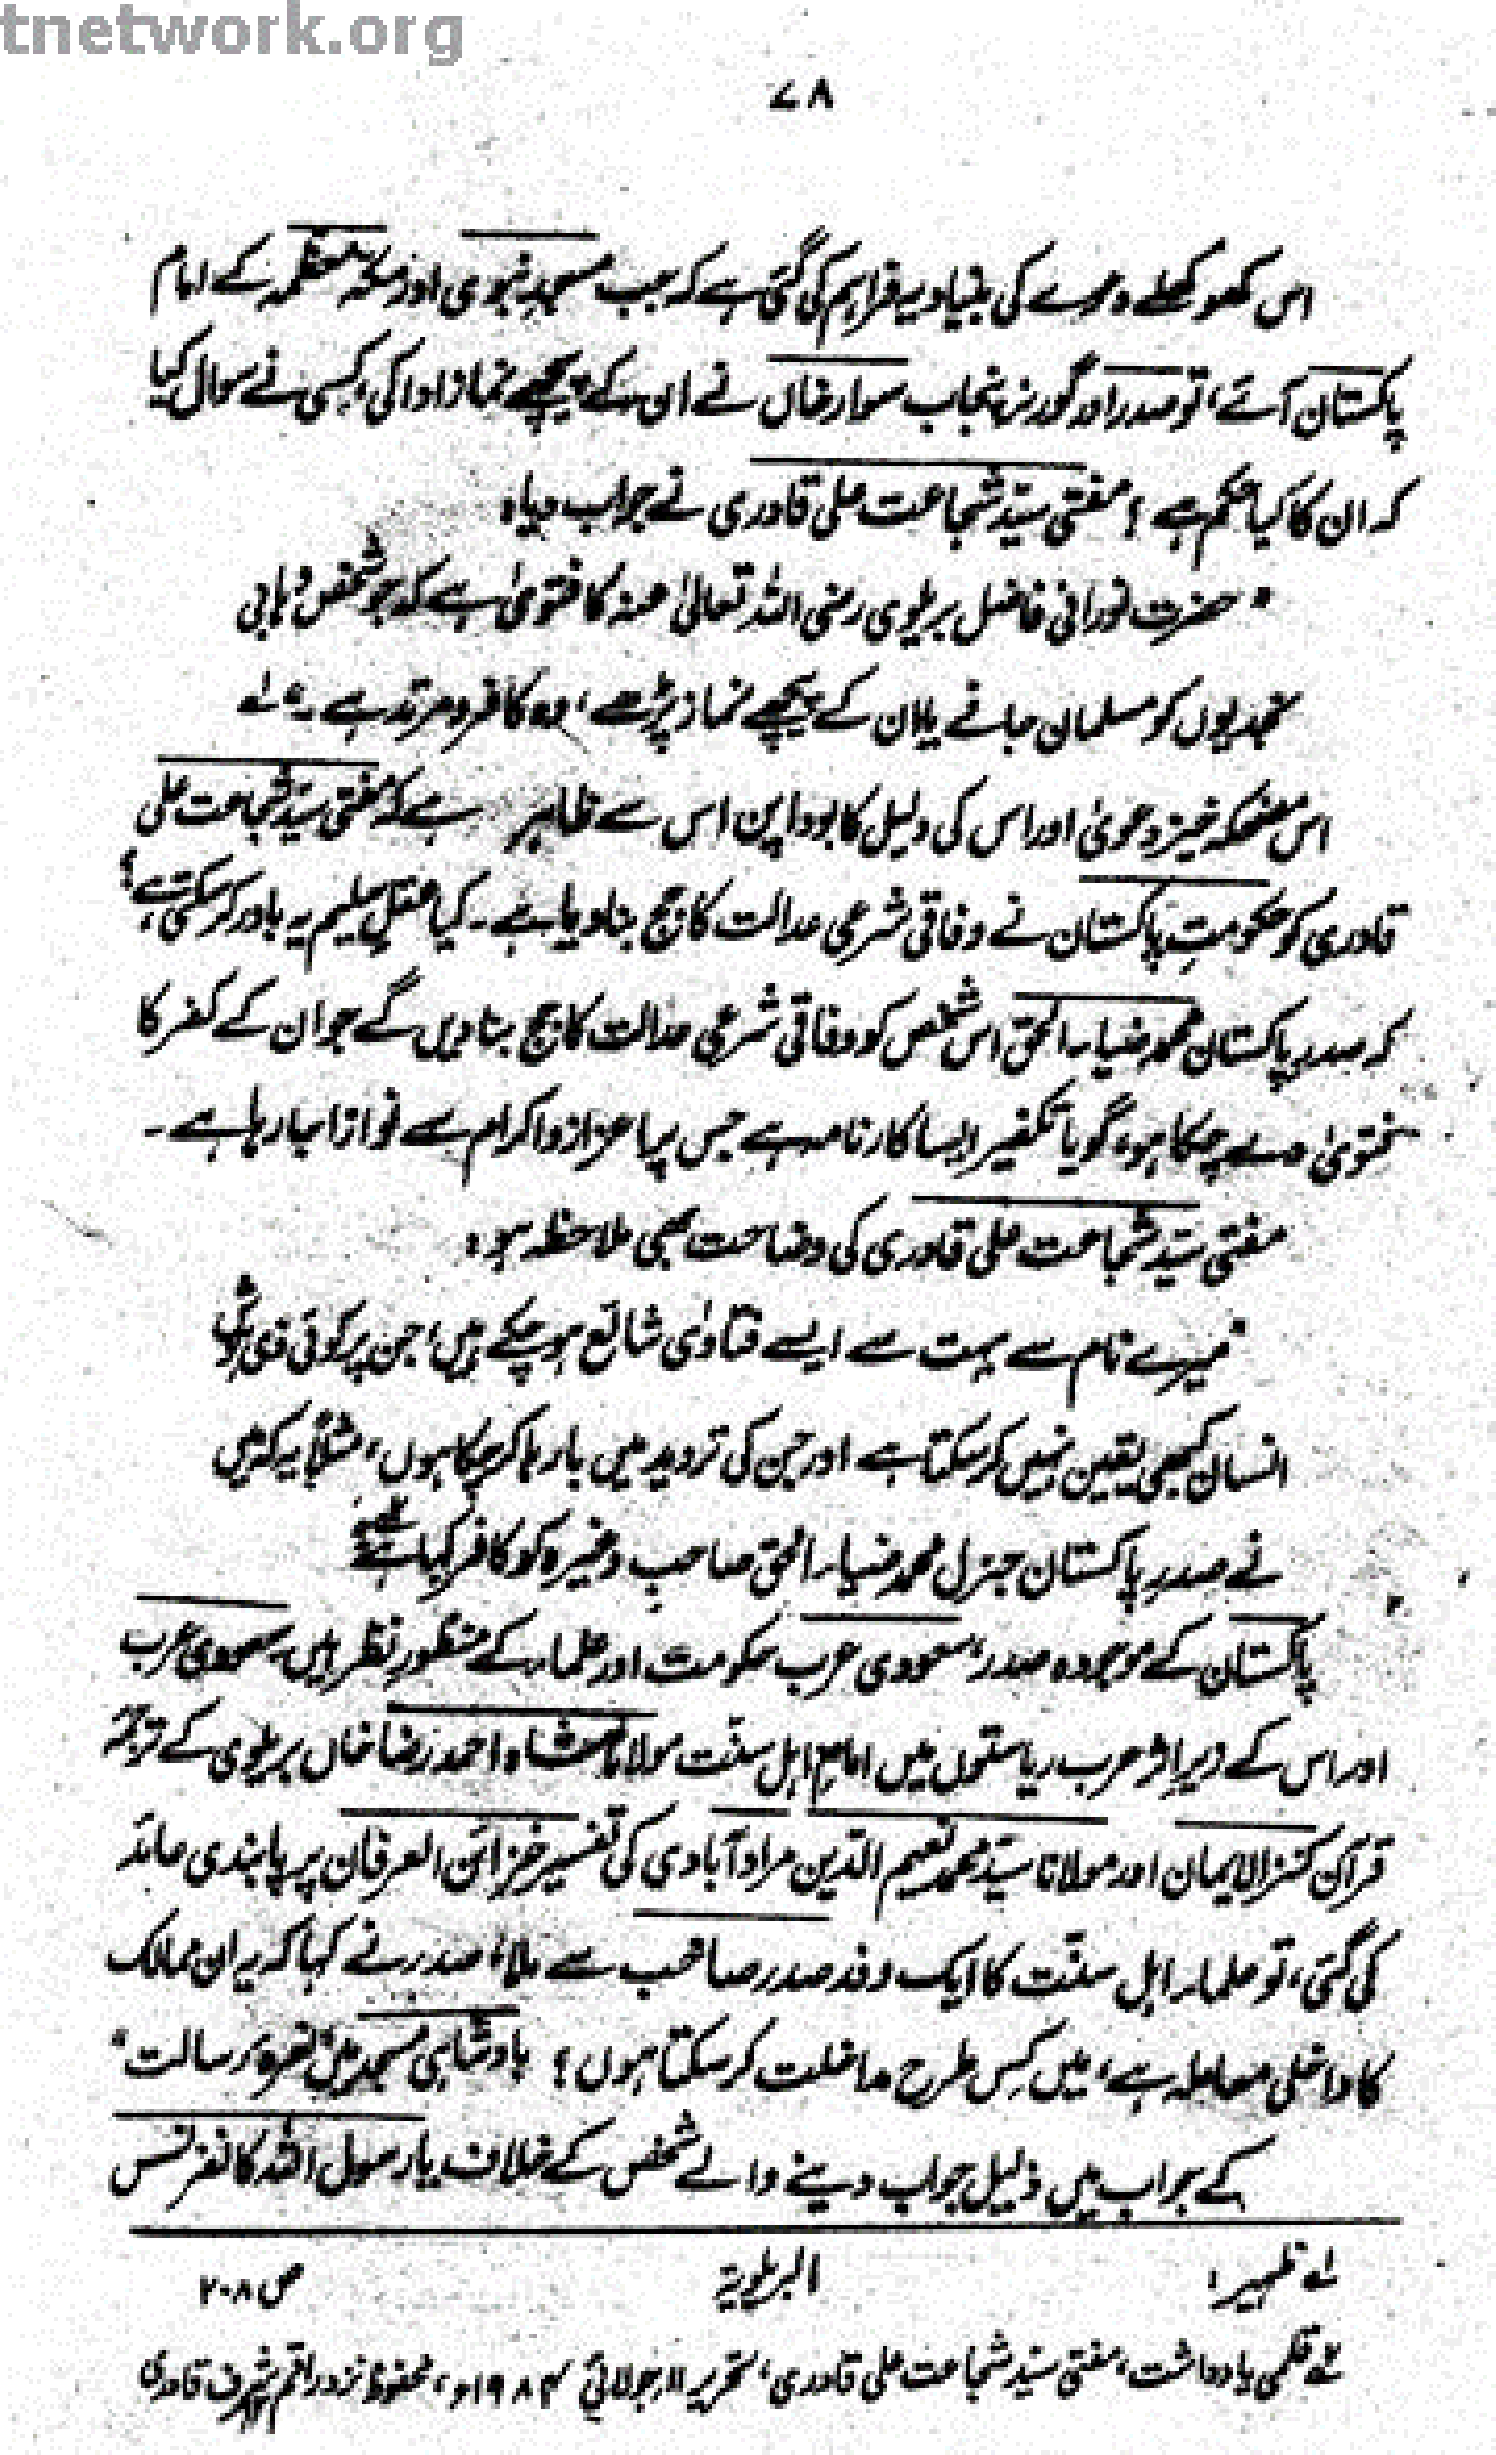 tnetwork.org
۷۸
اس کھوکھلے دعوے کی بنیاد یہ فراہم کی گئی ہے کہ جب مسجدِ نبوی اور مکہ معظمہ کے امام
پاکستان آئے، تو صدر اور گورنر پنجاب سوار خاں نے ان کے پیچھے نماز ادا کی، کسی نے سوال کیا
کہ ان کا کیا حکم ہے؟ مفتی سیّد شجاعت علی قادری نے جواب دیا:
" حضرت نورانی فاضل بریلوی رضی اللہ تعالیٰ عنہ کا فتویٰ ہے کہ جو شخص وہابی
نجدیوں کو مسلمان جانے یا ان کے پیچھے نماز پڑھے، وہ کافر و مرتد ہے۔" لہ
اس مضحکہ خیز دعویٰ اور اس کی دلیل کا بودا پن اس سے ظاہر ہے کہ مفتی سیّد شجاعت علی
قادری کو حکومتِ پاکستان نے وفاقی شرعی عدالت کا جج بنا دیا ہے۔ کیا عقلِ سلیم یہ باور کر سکتی ہے؟
کہ صدرِ پاکستان محمد ضیاء الحق اس شخص کو وفاقی شرعی عدالت کا جج بنا دیں گے جو ان کے کفر کا
فتویٰ دے چکا ہو، گویا تکفیر ایسا کارنامہ ہے جس پہ اعزاز و اکرام سے نوازا جا رہا ہے۔
مفتی سیّد شجاعت علی قادری کی وضاحت بھی ملاحظہ ہو:
"میرے نام سے بہت سے ایسے فتاویٰ شائع ہو چکے ہیں، جن پر کوئی ذی ہوش
انسان کبھی یقین نہیں کر سکتا ہے اور جن کی تردید میں بارہا کر چکا ہوں، مثلاً یہ کہ میں
نے صدرِ پاکستان جنرل محمد ضیاء الحق صاحب وغیرہ کو کافر کہا ہے"
پاکستان کے موجودہ صدر، سعودی عرب حکومت اور علماء کے منظورِ نظر ہیں، سعودی عرب
اور اس کے زیرِ اثر عرب ریاستوں میں امامِ اہلِ سنّت مولانا شاہ احمد رضا خاں بریلوی کے ترجمۂ
قرآن کنز الایمان اور مولانا سیّد محمد نعیم الدّین مرادآبادی کی تفسیر خزائن العرفان پر پابندی عائد
کی گئی، تو علماء اہل سنّت کا ایک وفد صدر صاحب سے ملا، صدر نے کہا کہ یہ ان ممالک
کا داخلی معاملہ ہے، میں کس طرح مداخلت کر سکتا ہوں؟ بادشاہی مسجد میں نعرۂ رسالت،
کے جواب میں ذلیل جواب دینے والے شخص کے خلاف یا رسول اللہ کانفرنس
لہ ظہیر: البریلویۃ ص ۲۰۸
قلمی یادداشت، مفتی سیّد شجاعت علی قادری، تحریر ۱۱ جولائی ۱۹۸۴ء، محفوظ نزد راقم شرف قادری